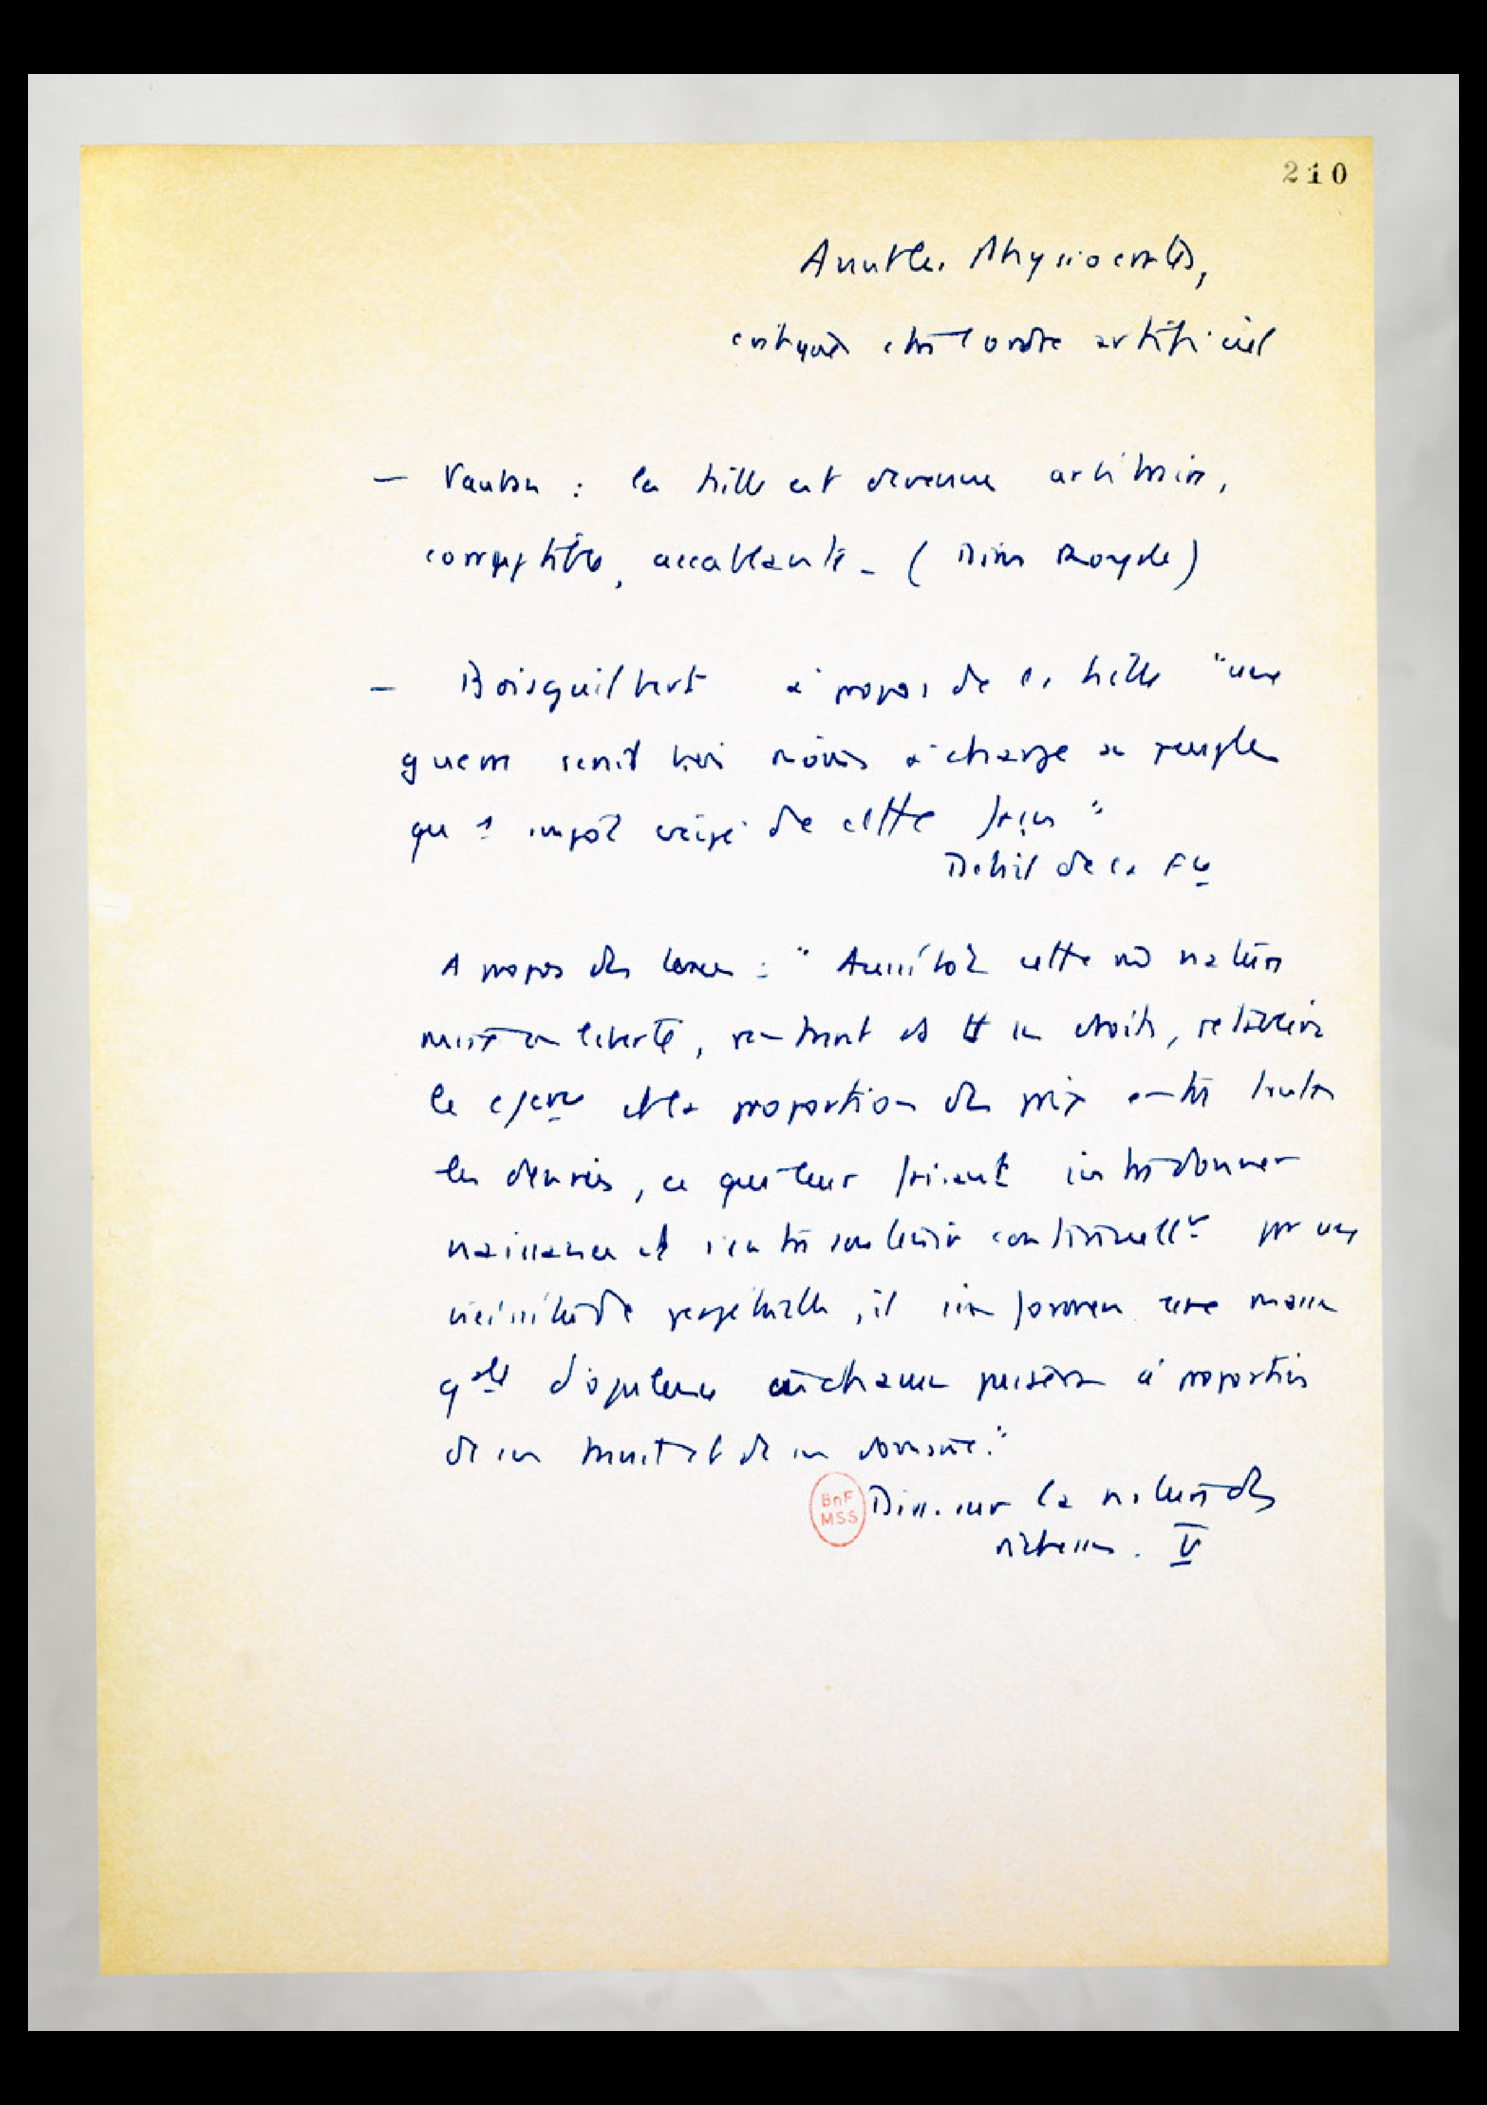 210
Avant les Physiocrates,
critique de l'ordre artificiel
– Vauban : la taille est devenue arbitraire,
corruptible, accablante – (Dîme Royale)
– Boisguilbert à propos de la taille "une
guerre serait moins à charge au peuple
qu'1 impôt exigé de cette façon"
Détail de la Fce
A propos des : "Aussitôt cette mê nature
mise en liberté, rentrant ds ts ses droits, rétablira
le cerce et la proportion des prix entre toutes
les denrées, ce qui leur faisant s'entredonner
naissance et s'entresoutenir continuellt par une
vicissitude perpétuelle, il s'en formera une masse
gale d'opulence où chacun puisera à proportion
de son travail et de son domaine."
BnF
MSS
Diss. sur la nature des
richesses. V